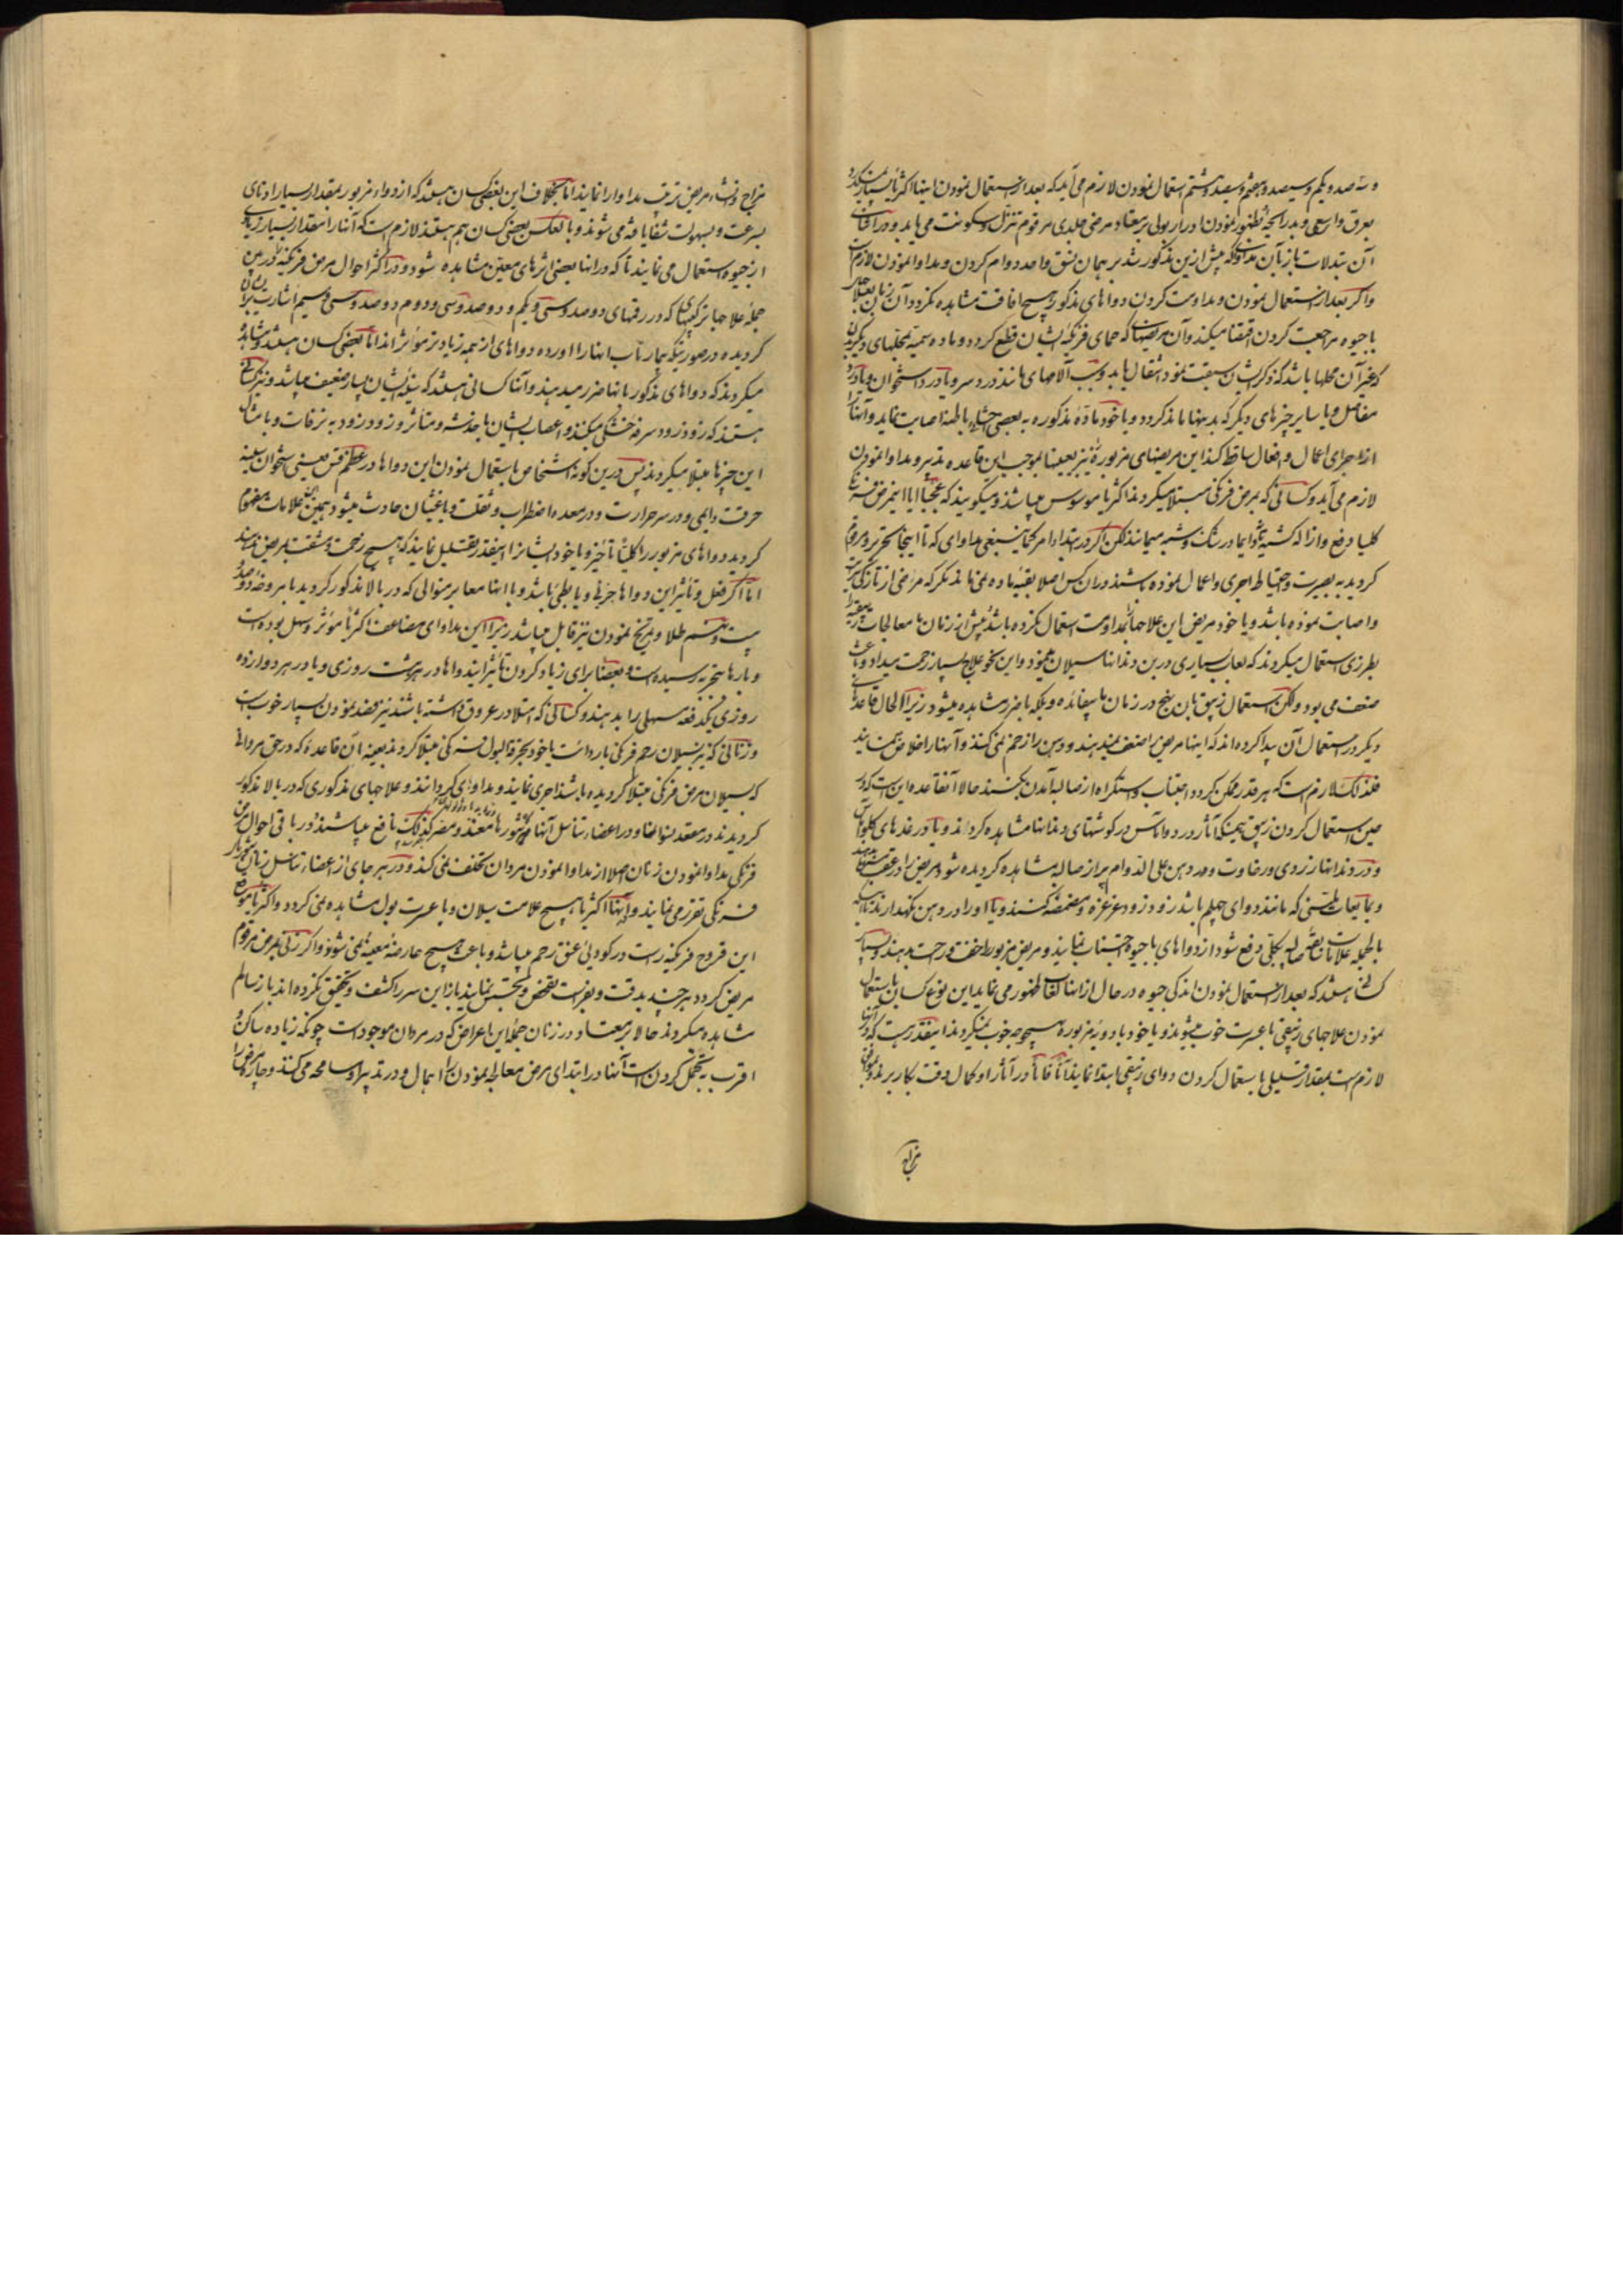 و سه صد و یکم و سیصد و هفتم و سیصد و هشتم استعمال نمودن لازم می آید که بعد از استعمال نمودن اینها اکثریا بسیار
بعرق واسعی و بد رایحه ظهور نمودن ادرار بولی بر معتاد مرض جلدی مرقوم تنزل و سکونت می یابد و در اثنای
آن تبدلات باز بآن مداوای که پیش ازین مذکور شد بر همان نسق واحد دوام کردن و مداوا نمودن لازم است
واکر بعد از استعمال نمودن و مداومت کردن دواهای مذکور هیچ افاقت مشاهده نکردد آن زمان بعلاجهای
با جیوه مراجعت کردن اقتضا میکند و آن مریضهایی که حمای فرنکیه ایشان قطع کردد و ماده سمیه بمحلهای دیکر بدن
که غیر آن محلها باشد که ذکر ایشان سبقت نمود انتقال یابد و سبب آلامهای مانند درد سر و یا درد استخوان و یا درد
مفاصل و یا سایر چیزهای دیکر که بدینها ماند کردد و یا خود ماده مذکوره به بعضی احشای باطنه اصابت نماید و آنها را
از اجرای اعمال و افعال ساقط کند این مریضهای مزبوره نیز بعینها بموجب این قاعده تدبیر و مداوا نمودن
لازم می آید و کسانی که بمرض فرنکی مبتلا میکردند اکثریا موسوس میباشند و میکویند که عجبا آیا این مرض فرنکی
کلیا دفع و ازاله کشته یا دایما در شک و شبهه میمانند لکن اکر در ابتدا امر کماینبغی مداوای که تا اینجا تحریر و مرقوم
کردید به بصیرت و احتیاط اجری و اعمال نموده باشند در آن کس اصلا بقیه ماده نمی ماند مکر که مرض از تازکی سرایت
و اصابت نموده باشد و یا خود مریض این علاجها را بمداومت استعمال نکرده باشد پیش ازین زمان با معالجات زیبقیه را
بطرزی استعمال میکردند که لعاب بسیاری در بن دندانها سیلان مینمود و این نحو علاج بسیار زحمت میداد و باعث
ضعف می بود ولکن استعمال زیبق بان نهج در زمان ما بیفائده و بلکه با ضرر مشاهده میشود زیرا الحال قاعده های
دیکر در استعمال آن پیدا کرده اند که اینها مریض را ضعف نمیدهند و دهن را زخم نمی کنند و آنها را خلاص میسازند
فلذلک لازم است که هر قدر ممکن کردد اجتناب و استکراه از صالیه آمدن بکنند حالا آنقاعده این است که در
حین استعمال کردن زیبق همینکه آثار درد و آماس در کوشتهای دندانها مشاهده کردند و یا در غده های کلو
و در دندانها زردی و رخاوت و در دهن علی الدوام پر از صالیه مشاهده کردیده شود مریض را در عقب
و مایعات ملینی که مانند دوای چهلم باشد زود زود غرغره و مضمضه کنند و یا او را در دهن نکهدارند تا اینکه
بالجمله علامات صالیه بکلی دفع شود از دواهای با جیوه اجتناب نمایند و مریض مزبور را خفت و راحت بدهند و بسیار
کسانی هستند که بعد از استعمال نمودن اندکی جیوه در حال از آنها لعاب ظهور می نماید این نوع کسان باستعمال
نمودن علاجهای زیبقی با عسرت خوب میشوند و یا خود با دویه مزبوره هیچ وجه خوب نمیکردند اینقدر هست که در آنها
لازم است بمقدار قلیلی باستعمال کردن دوای زیبقی ابتدا نمایند آنا فانا در آثار او کمال دقت بکار برند و بموافق
مزاج
مزاج و نشاء مریض ترتیب مداوا را نمایند اما بخلاف این بعضی کسان هستند که از دواء مزبور بمقدار بسیار او تای
بسرعت و بسهولت شفا یافته می شوند و بالعکس بعضی کسان هم هستند لازم است که آنها را مقدار بسیار زیادی
از جیوه استعمال می نمایند تا که در آنها بعضی اثرهای معین مشاهده شود و در اکثر احوال مرض فرنکیه که در بین
جمله علاجها ترکیبهای که در رقمهای دو صد و سی و یکم و دو صد و سی و دوم و دو صد و سی و سیم اشارت بر آن
کردیده در صورتیکه بیمار تاب اینها را آورده دواهای از همه زیادتر مؤثر اند اما بعضی کسان هستند و مشاهده
میکردند که دواهای مذکور بانها ضرر میدهند و آنها کسانی هستند که سینه ایشان بسیار ضعیف میباشد و نیز کسانی
هستند که زود زود سرفه خشکی میکنند و اعصاب ایشان با خدشه و متأثر و زود زود به نزفات و یا مثال
این چیزها مبتلا میکردند پس درین کونه اشخاص باستعمال نمودن این دواها در عظم قس یعنی استخوان سینه
حرقت دایمی و در سر حرارت و در معده اضطراب و ثقلت و یا غثیان حادث میشود بمجرد این علامات مفهوم
کردید دواهای مزبور را کلیاً تأخیر و یا خود ایشانرا اینقدر تقلیل نمایند که هیچ زحمت و مشقت بمریض ندهند
اما اکر فعل و تأثیر این دواها جزئی و یا بطئی باشد و با اینها معابر بمنوالی که در بالا مذکور کردید با مروخه دو صد و
بیست و ششم طلا و تمریخ نمودن نیز قابل میباشد زیرا این مداوای مضاعف اکثریا مؤثر و سهل بوده است
و بارها بتجربه رسیده است و بعضا برای زیاد کردن تأثیر ایندواها در هر هشت روزی و یا در هر دوازده
روزی یکدفعه مسهلی را بدهند و کسانی که امتلا در عروق داشته باشند نیز فصد نمودن بسیار خوب است
و زنانی که بر سیلان رحم فرنکی بارداست یا خود بحرقة البول فرنکی مبتلا کردند بعینه آن قاعده که در حق مردانی
که بسیلان مرض فرنکی مبتلا کردیده باشند اجری نمایند و مداوای کردانند و علاجهای مذکوری که در بالا مذکور
کردیدند در مقعد نسوانها و در اعضاء تناسل آنها مضر کذلک نافع میباشند و در باقی احوال مرض
فرنکی مداوا نمودن زنان اصلا از مداوا نمودن مردان تخلف نمی کند و در هر جای از اعضاء تناسل زنان
فرنکی تقرر می نمایند و آنها اکثریا هیچ علامت سیلان و یا عسرت بول مشاهده نمی کردد و اکثریا موضع
این قروح فرنکیه راست در کودی عنق رحم میباشد و باعث هیچ عارضه معینه نمی شود و اکر زنی بمرض مرقوم
مریض کردد هر چند بدقت و بفراست تفحص و تجسس نمایند باز این سر را کشف و تحقیق نکرده اند باز سالم
مشاهده میکردند حالا بر معتاد در زنان جمله این اعراض که در مردان موجود است چونکه زیاده ساکن و
اقرب به تحمل کردن است آنها در ابتدای مرض معالجه نمودن را اهمال و در تدبیر او مسامحه می کنند و جاریه